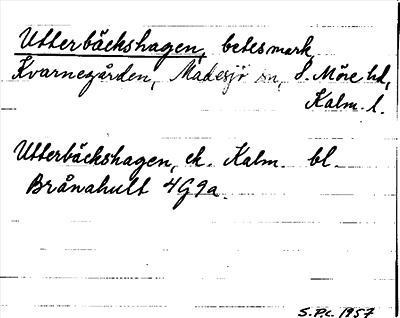 Utterbäckshagen, betesmark,
Kvarnegården, Madesjö sn, S. Möre hd,
Kalm. l.
Utterbäckshagen, ek. Kalm. bl.
Brånahult 4G9a.
S.P.c. 1957